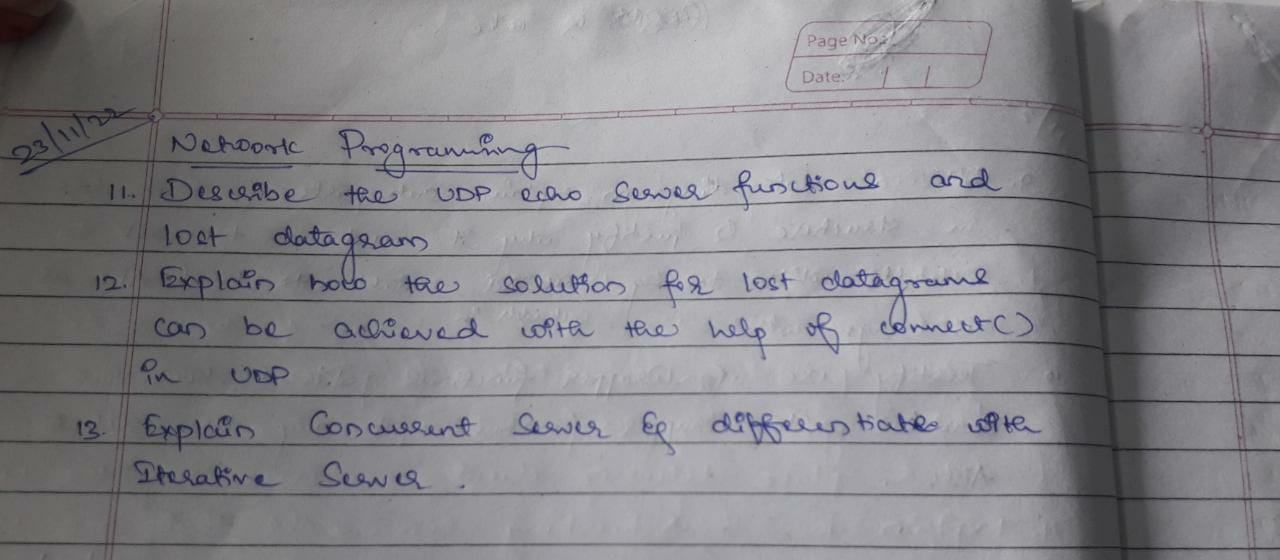 Page No.:
Date: / /
23/11/22
Network Programming
11. Describe the UDP echo Server functions and
lost datagram
12. Explain how the solution for lost datagrams
can be achieved with the help of connect()
in UDP
13. Explain Concurrent Server & differentiate with
Iterative Server.